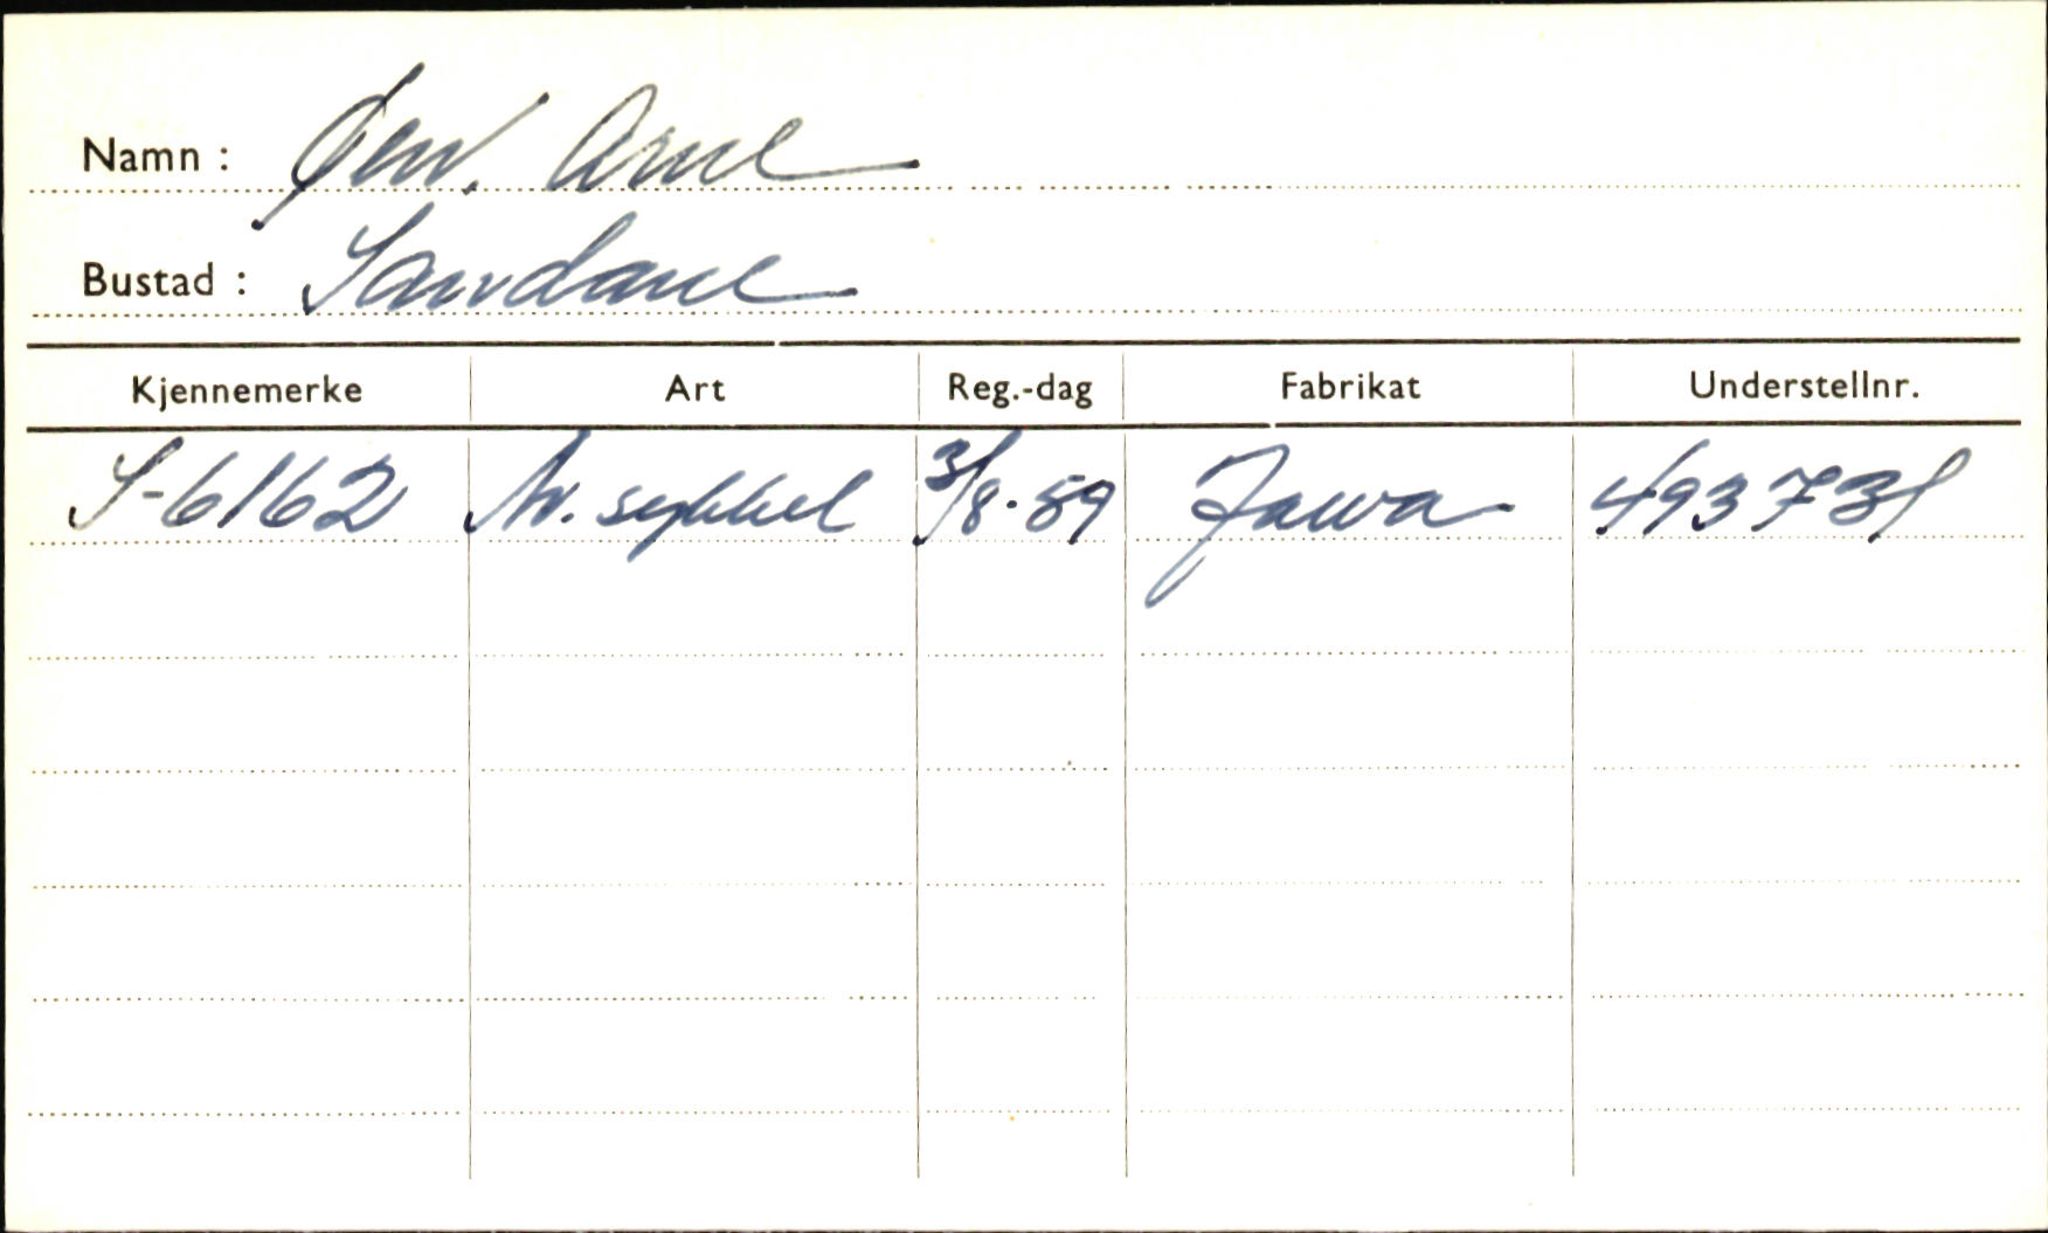 Namn : Øen, Arne
Bustad : Sandane
Kjennemerke Art Reg.-dag Fabrikat Understellnr.
S-6162 M. sykkel 3/8-59 Jawa 493731